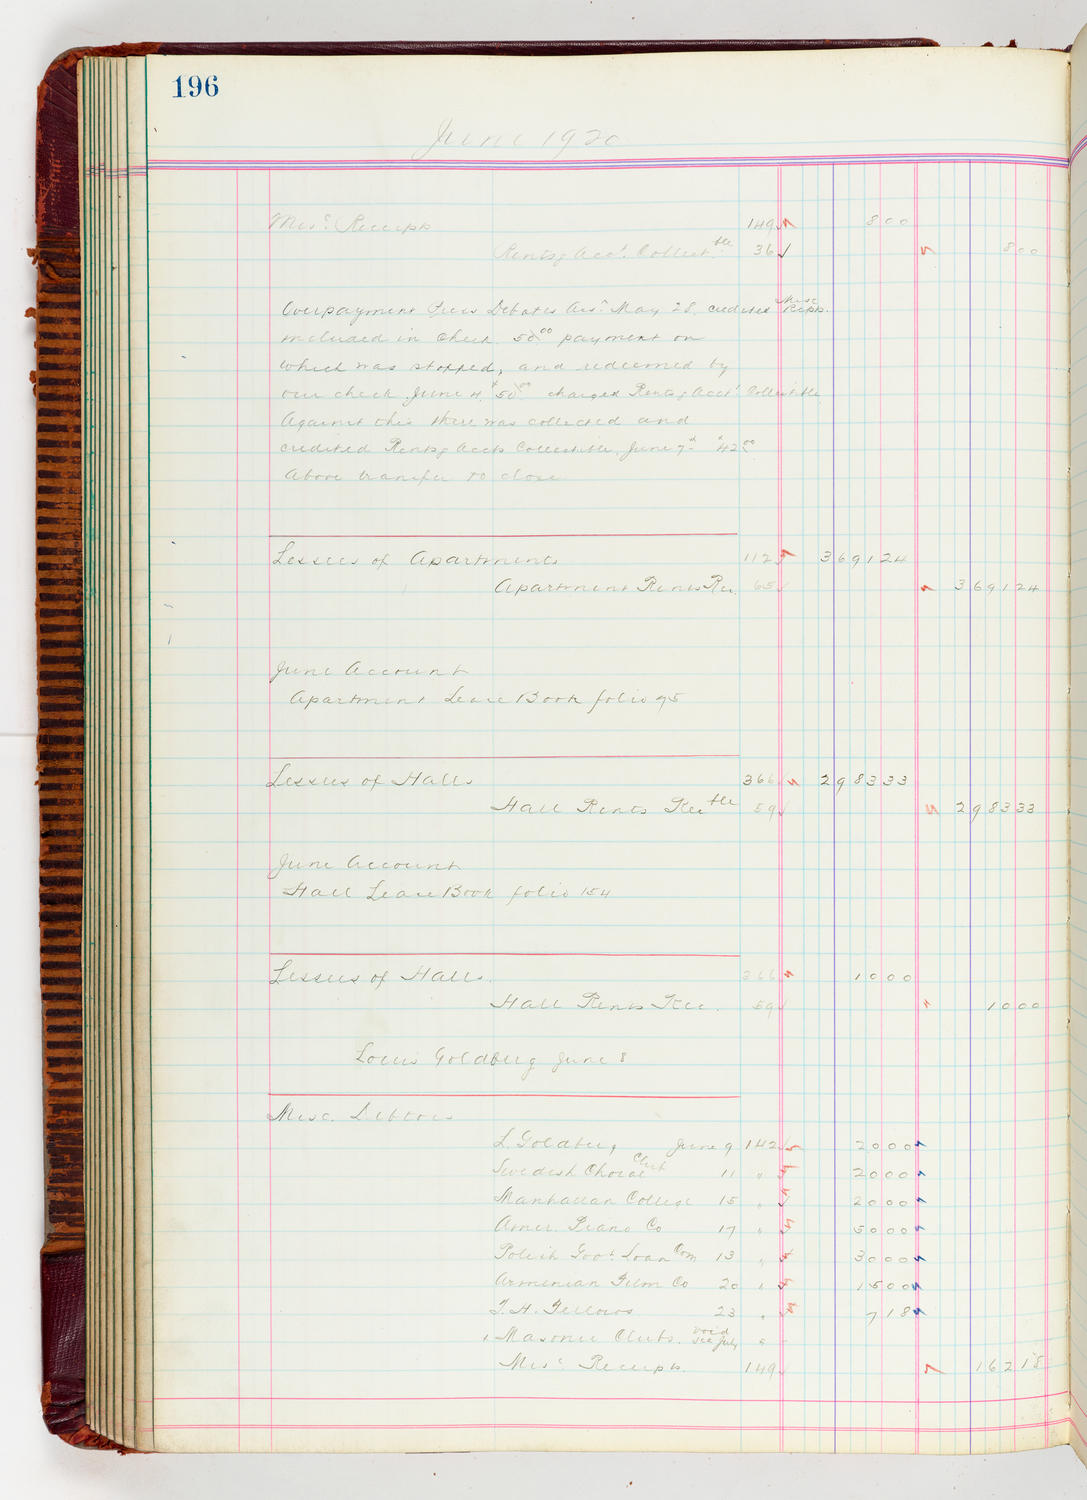 196
June 1920
Misc. Receipts 149 8 00
Rents & Acc'. Collectble 36 8 00
Overpayment Debates May 28, credited Misc Repts.
included in check 50.00 payment on
which was stopped, and redeemed by
our check June 4, $50.00 charged Rents & Acct' Collectible
Against this there was collected and
credited Rents & Accts Collectible, June 7th $42.00
Above transfer to close
Lessees of Apartments 112 3691 24
Apartment Rents Rec. 65 3691 24
June Account
Apartment Lease Book folio 95
Lessees of Halls 366 2983 33
Hall Rents Recble 59 2983 33
June Account
Hall Lease Book folio 154
Lessees of Halls 366 10 00
Hall Rents Rec. 59 10 00
Louis Goldberg June 8
Misc. Debtors
L. Goldberg June 9 142 20 00
Swedish Choral Club 11 " 20 00
Manhattan College 15 " 20 00
Amer. Piano Co 17 " 50 00
Polish Govt. Loan Com 13 " 30 00
Armenian Film Co 20 " 15 00
T. H. Fellows 23 " 7 18
Masonic Clubs. void see July "
Misc Receipts. 149 162 18